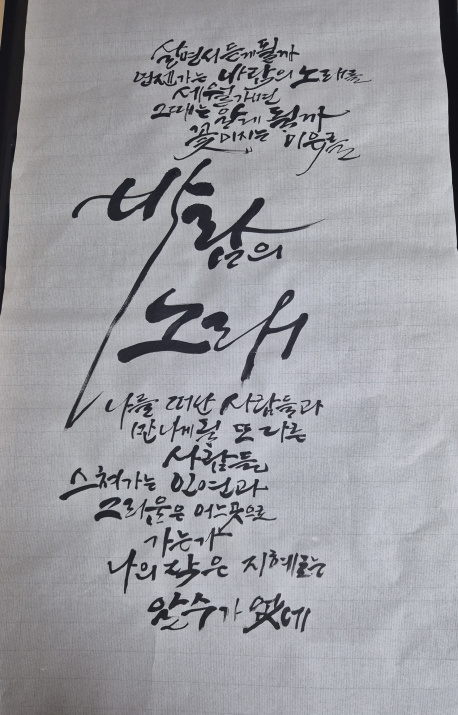 살면서 듣게 될까
언젠가는 바람의 노래를
세월가면
그때는 알게 될까
꽃이지는 이유를
바람의
노래
나를 떠난 사람들과
만나게될 또 다른
사람들
스쳐가는 인연과
그리움은 어느곳으로
가는가
나의 작은 지혜로는
알수가 없네